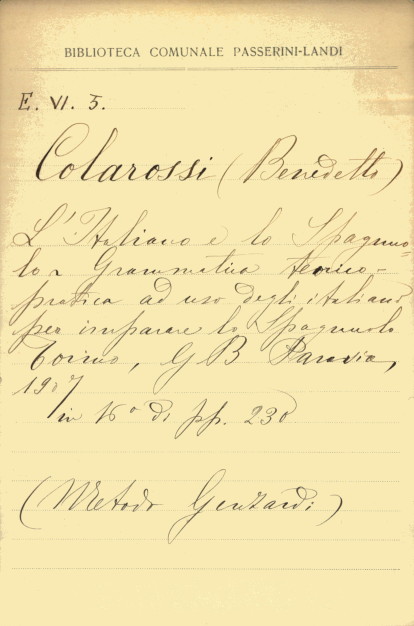 BIBLIOTECA COMUNALE PASSERINI-LANDI
E. VI. 5.
Colarossi (Benedetto)
L'Italiano e lo Spagnuo=
lo ~ Grammatica teorico-
pratica ad uso degli italiani
per imparare lo Spagnuolo
Torino, G B Paravia,
1907
in 16° di pp. 230
(Metodo Genzardi)